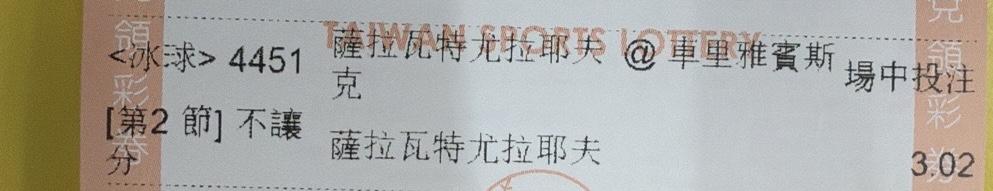 TAIWAN SPORTS LOTTERY
<冰球> 4451 薩拉瓦特尤拉耶夫 @ 車里雅賓斯克 場中投注
[第2 節] 不讓分 薩拉瓦特尤拉耶夫 3.02
領彩券
克領彩券